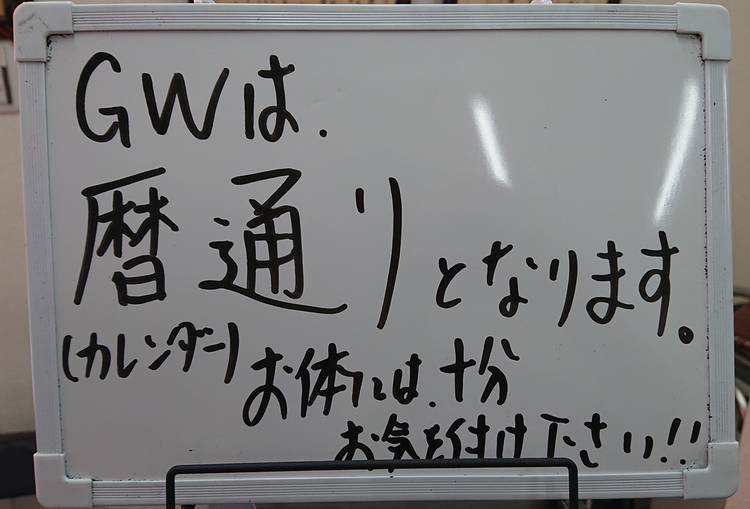 GWは、
暦通りとなります。
(カレンダー)
お体には、十分
お気を付け下さい!!